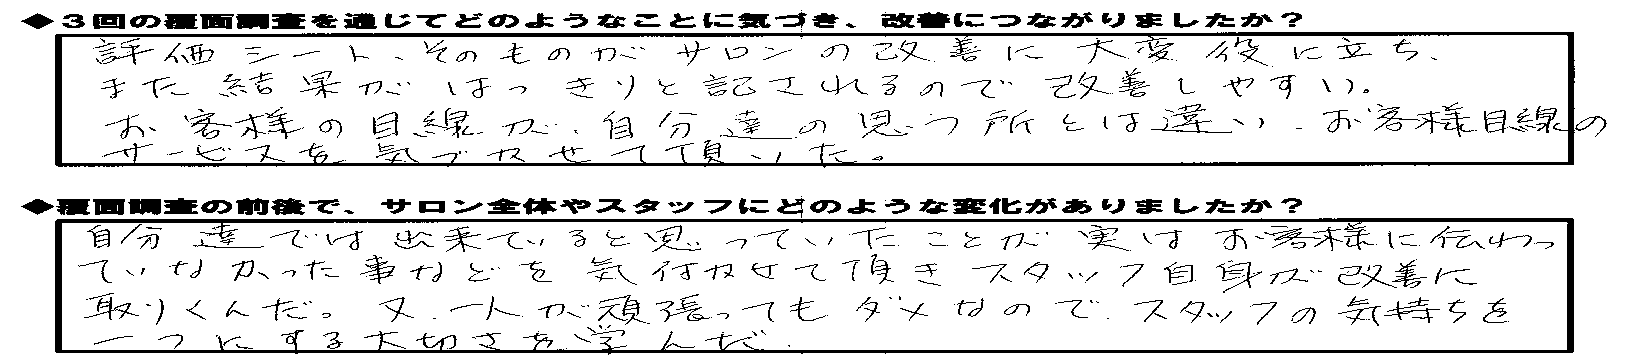 ◆３回の覆面調査を通じてどのようなことに気づき、改善につながりましたか？
評価シート、そのものがサロンの改善に大変役に立ち、
また結果がはっきりと記されるので改善しやすい。
お客様の目線が、自分達の思う所とは違い、お客様目線の
サービスを気づかせて頂いた。
◆覆面調査の前後で、サロン全体やスタッフにどのような変化がありましたか？
自分達では出来ていると思っていたことが実はお客様に伝わっ
ていなかった事などを気付かせて頂きスタッフ自身が改善に
取りくんだ。又、一人が頑張ってもダメなので、スタッフの気持ちを
一つにする大切さを学んだ。